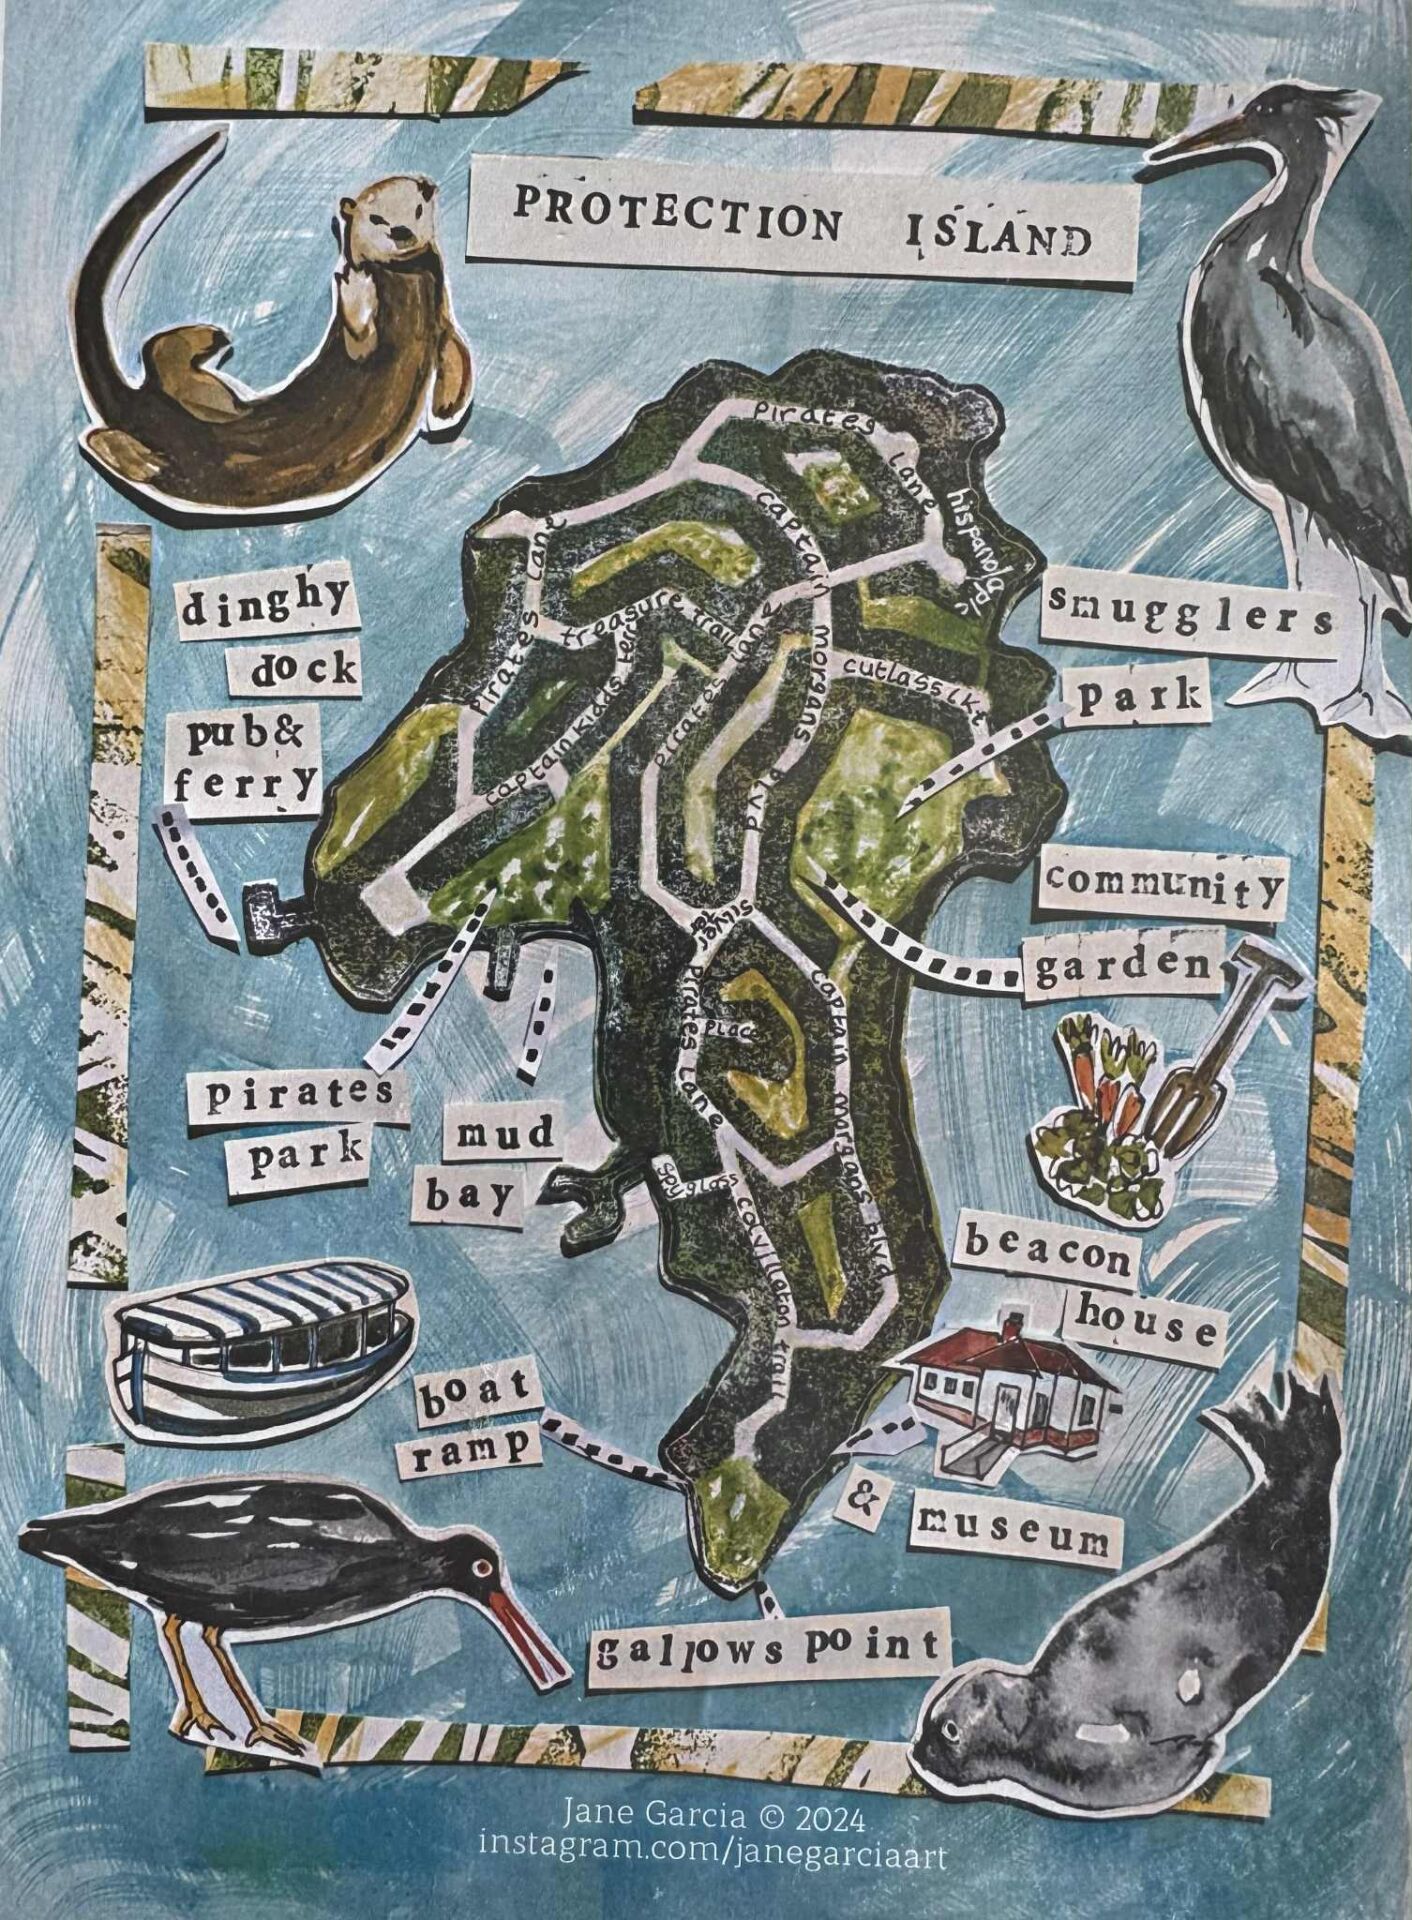 PROTECTION ISLAND
pirates
lane
hispanola plc
captain
morgans
blvd
pirates lane
treasure trail
captain kidds terr
pirates lane
cutlass lkt
smugglers
park
dinghy
dock
pub &
ferry
community
garden
silver
pirates lane
place
captain morgans blvd
pirates
park
mud
bay
spyglass
cavilleton trail
beacon
house
& museum
boat
ramp
gallows point
Jane Garcia © 2024
instagram.com/janegarciaart